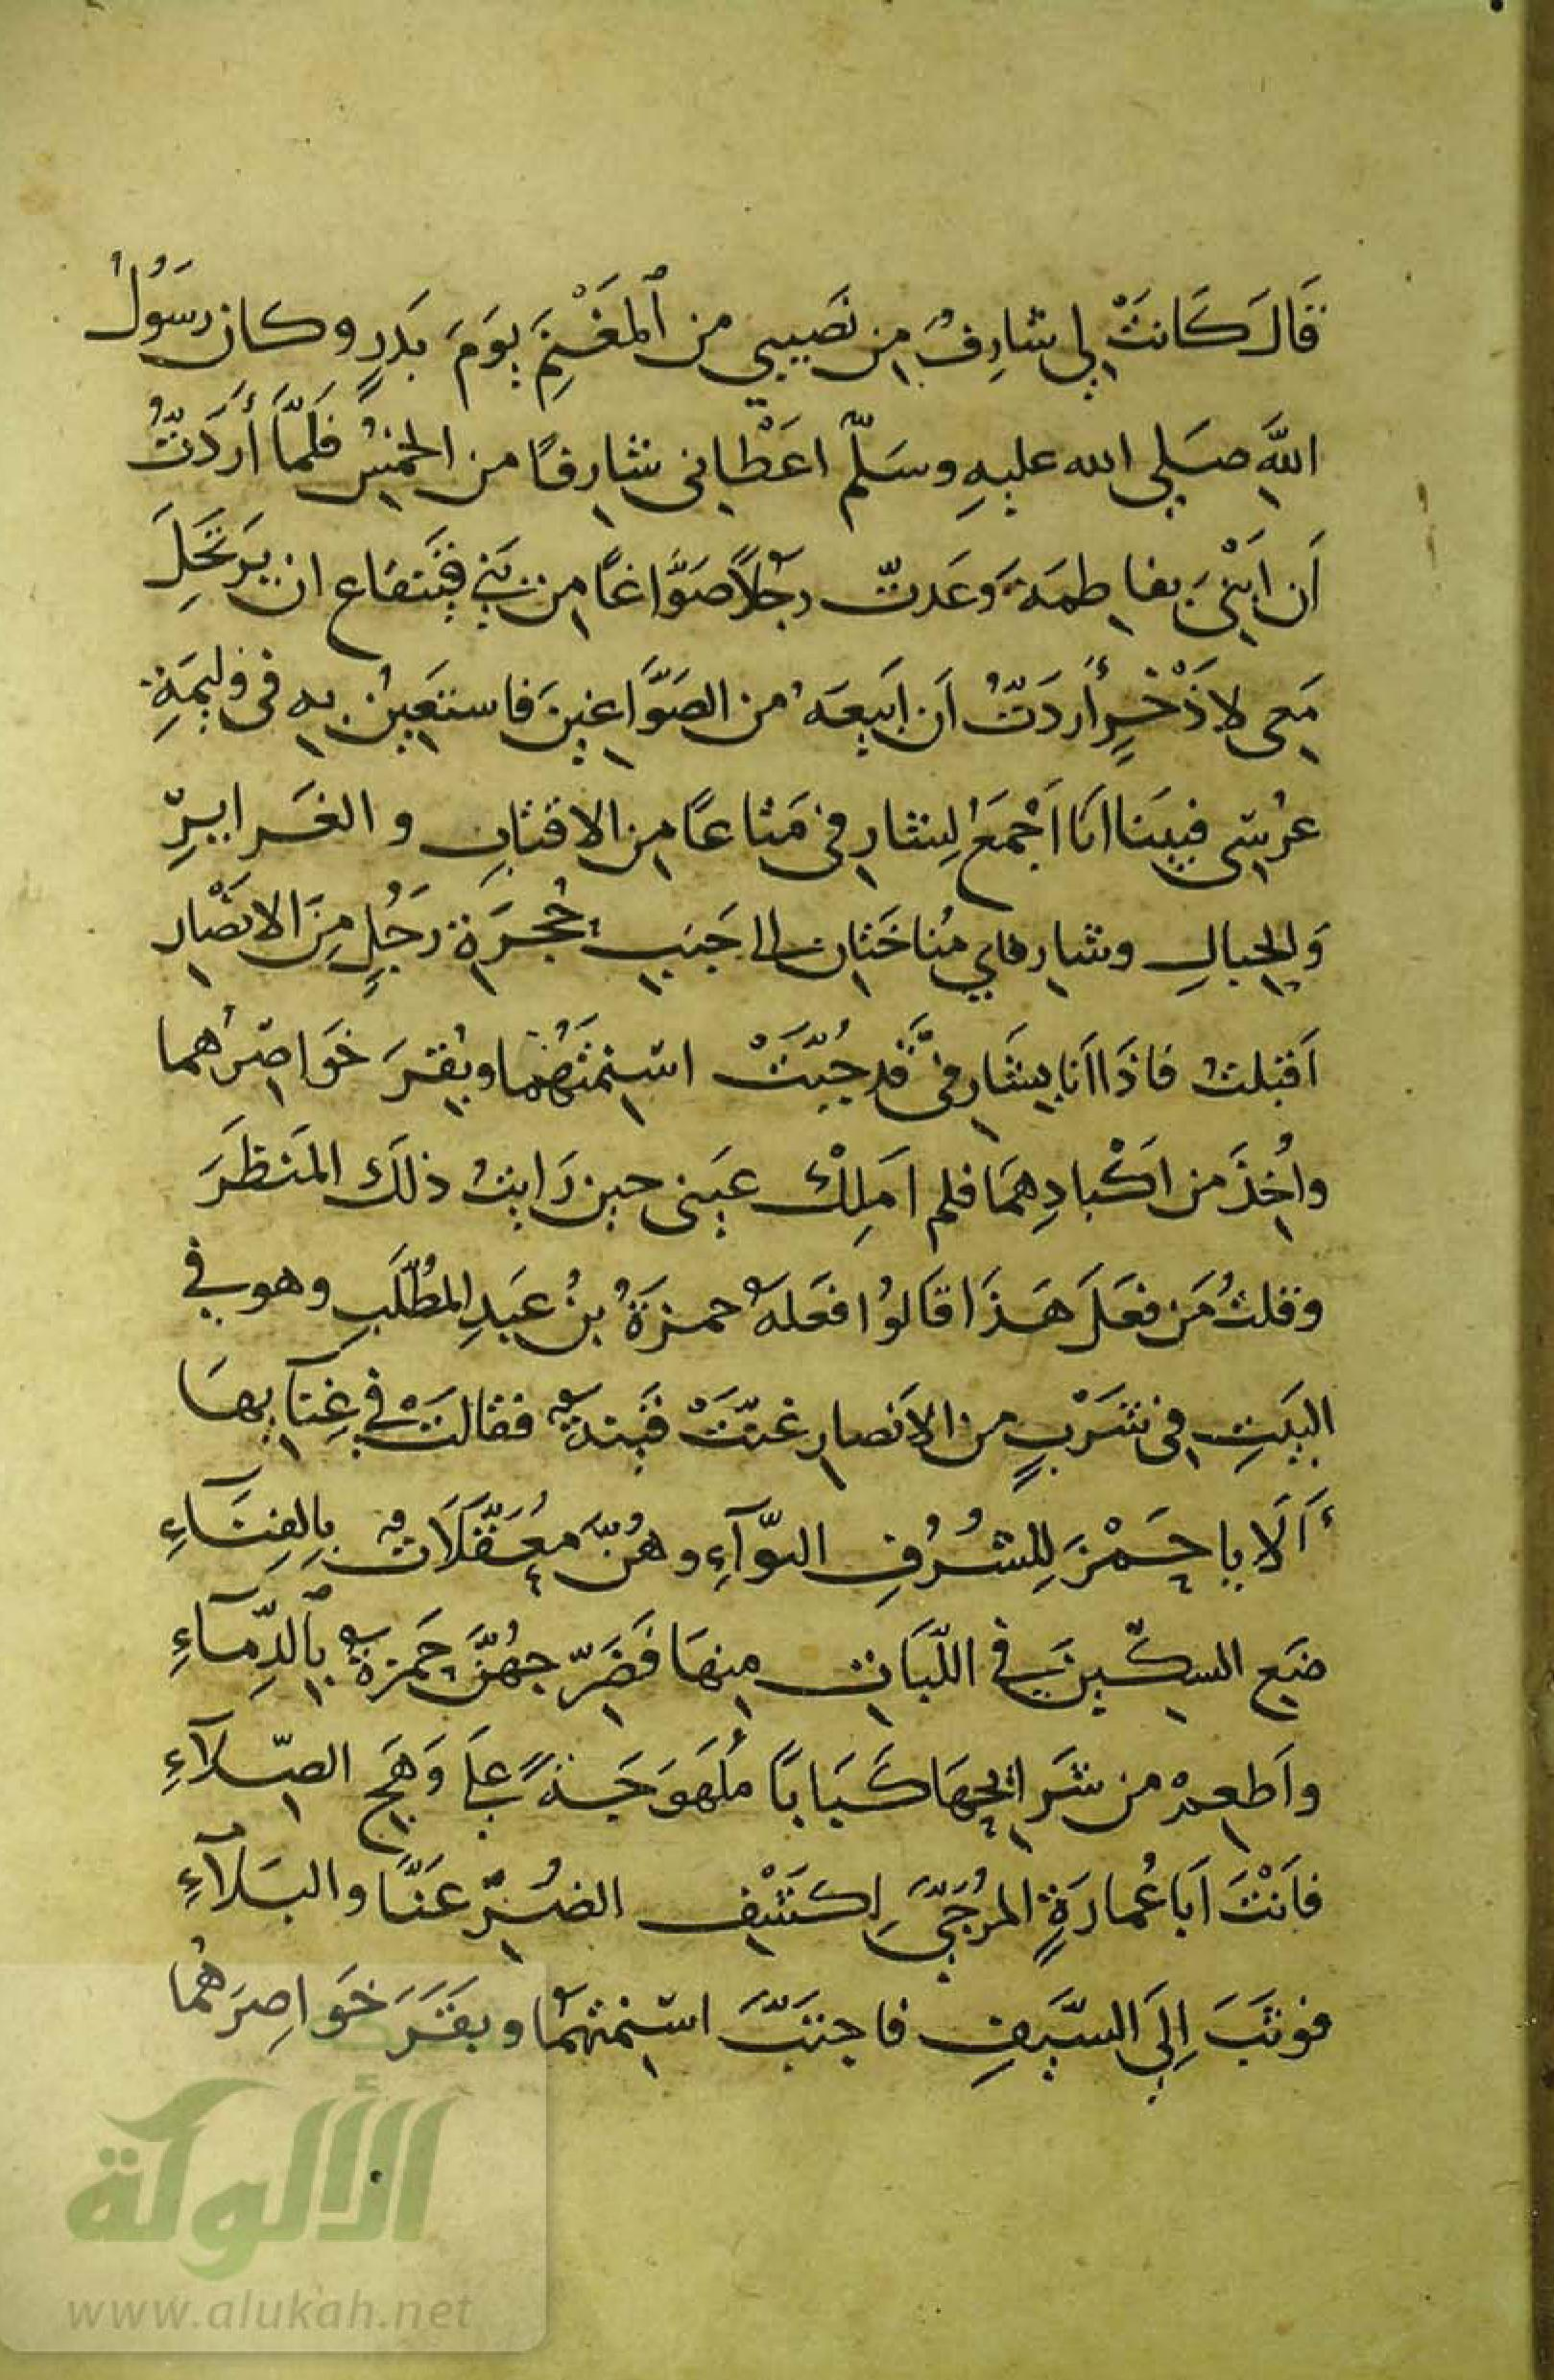 قَالَ كَانَتْ لِي شَارِفٌ مِن نَصَيبي من ٱلمَغْنَمِ يَوَمَ بَدَرٍ وكان رسَوُلُ
اللَّهِ صَلي الله عليهِ وسَلّم اعَطْاني شارفًا من الخمُسِ فلَمَّا أَرَدَتُّ
اَن ابَتْنيَ بفاطمَةَ وَعَدتّ رجُلاً صَوَّاغًا من بَني قَيَنقاع ان يَرتَحَلِ
مَعي لاذَخْرٍ أَردَتُّ اَن ابَيعَهُ من الصَوَّاغينَ فاستعَينُ به في وَليمَةِ
عرُسي فبيَنا انَا اَجْمعَُ لِشارفي مَتاعًا من الاقتابِ والغَرايرِ
وَالحِبالِ وشارفاي مُناخَتان الى جَنبِ حُجرَةِ رَجُلٍ مِنَ الانصْار
اَقبَلتُ فاذَا اَنا بِشَارفيَّ قد جُبّتَْ اسَنِمتَهُما وبُقرَِ خَوَاصرُِهما
واُخِذَ من اَكْبادِهمَا فلم اَملِكْ عَيني حين رَايتُ ذلَكَ المَنظَرَ
وقلتُ مَن فعَلَ هَذَا قاَلوُا فعَلهَُ حمزَةُ بنُ عَبدِ المطُلّبِ وهو في
البَيتِ في شَرْبٍ من الاَنصارِ غنّتَْ قيَنةٌ فقالتَْ في غِنآيها
اَلَا يا حَمْزَ لِلشُرُفِ النوّآءِ وهُنَّ مُعَقَّلَاتٌ بِالفِنَاءِ
ضَعِ السكّينَ في اللّبَاتِ مِنهَا فَضَرّجهُنَّ حَمزةُ بِٱلدِّمآءِ
واَطعِمْ من شَرَايحِهَا كَبَابًا مُلَهوَجَةً علَى وَهَجِ الصِّلآءِ
فاَنْتَ اَبا عُمارَةٍ المُرُجَّى لِكشَْفِ الضُرِّ عَنَّا والبَلآءِ
فوثَبَ اِلَى السَّيفِ فاجتَبَّ اسَنِمتَهمُا وبقَرَ خَواصِرَهُما
الألوكة
www.alukah.net